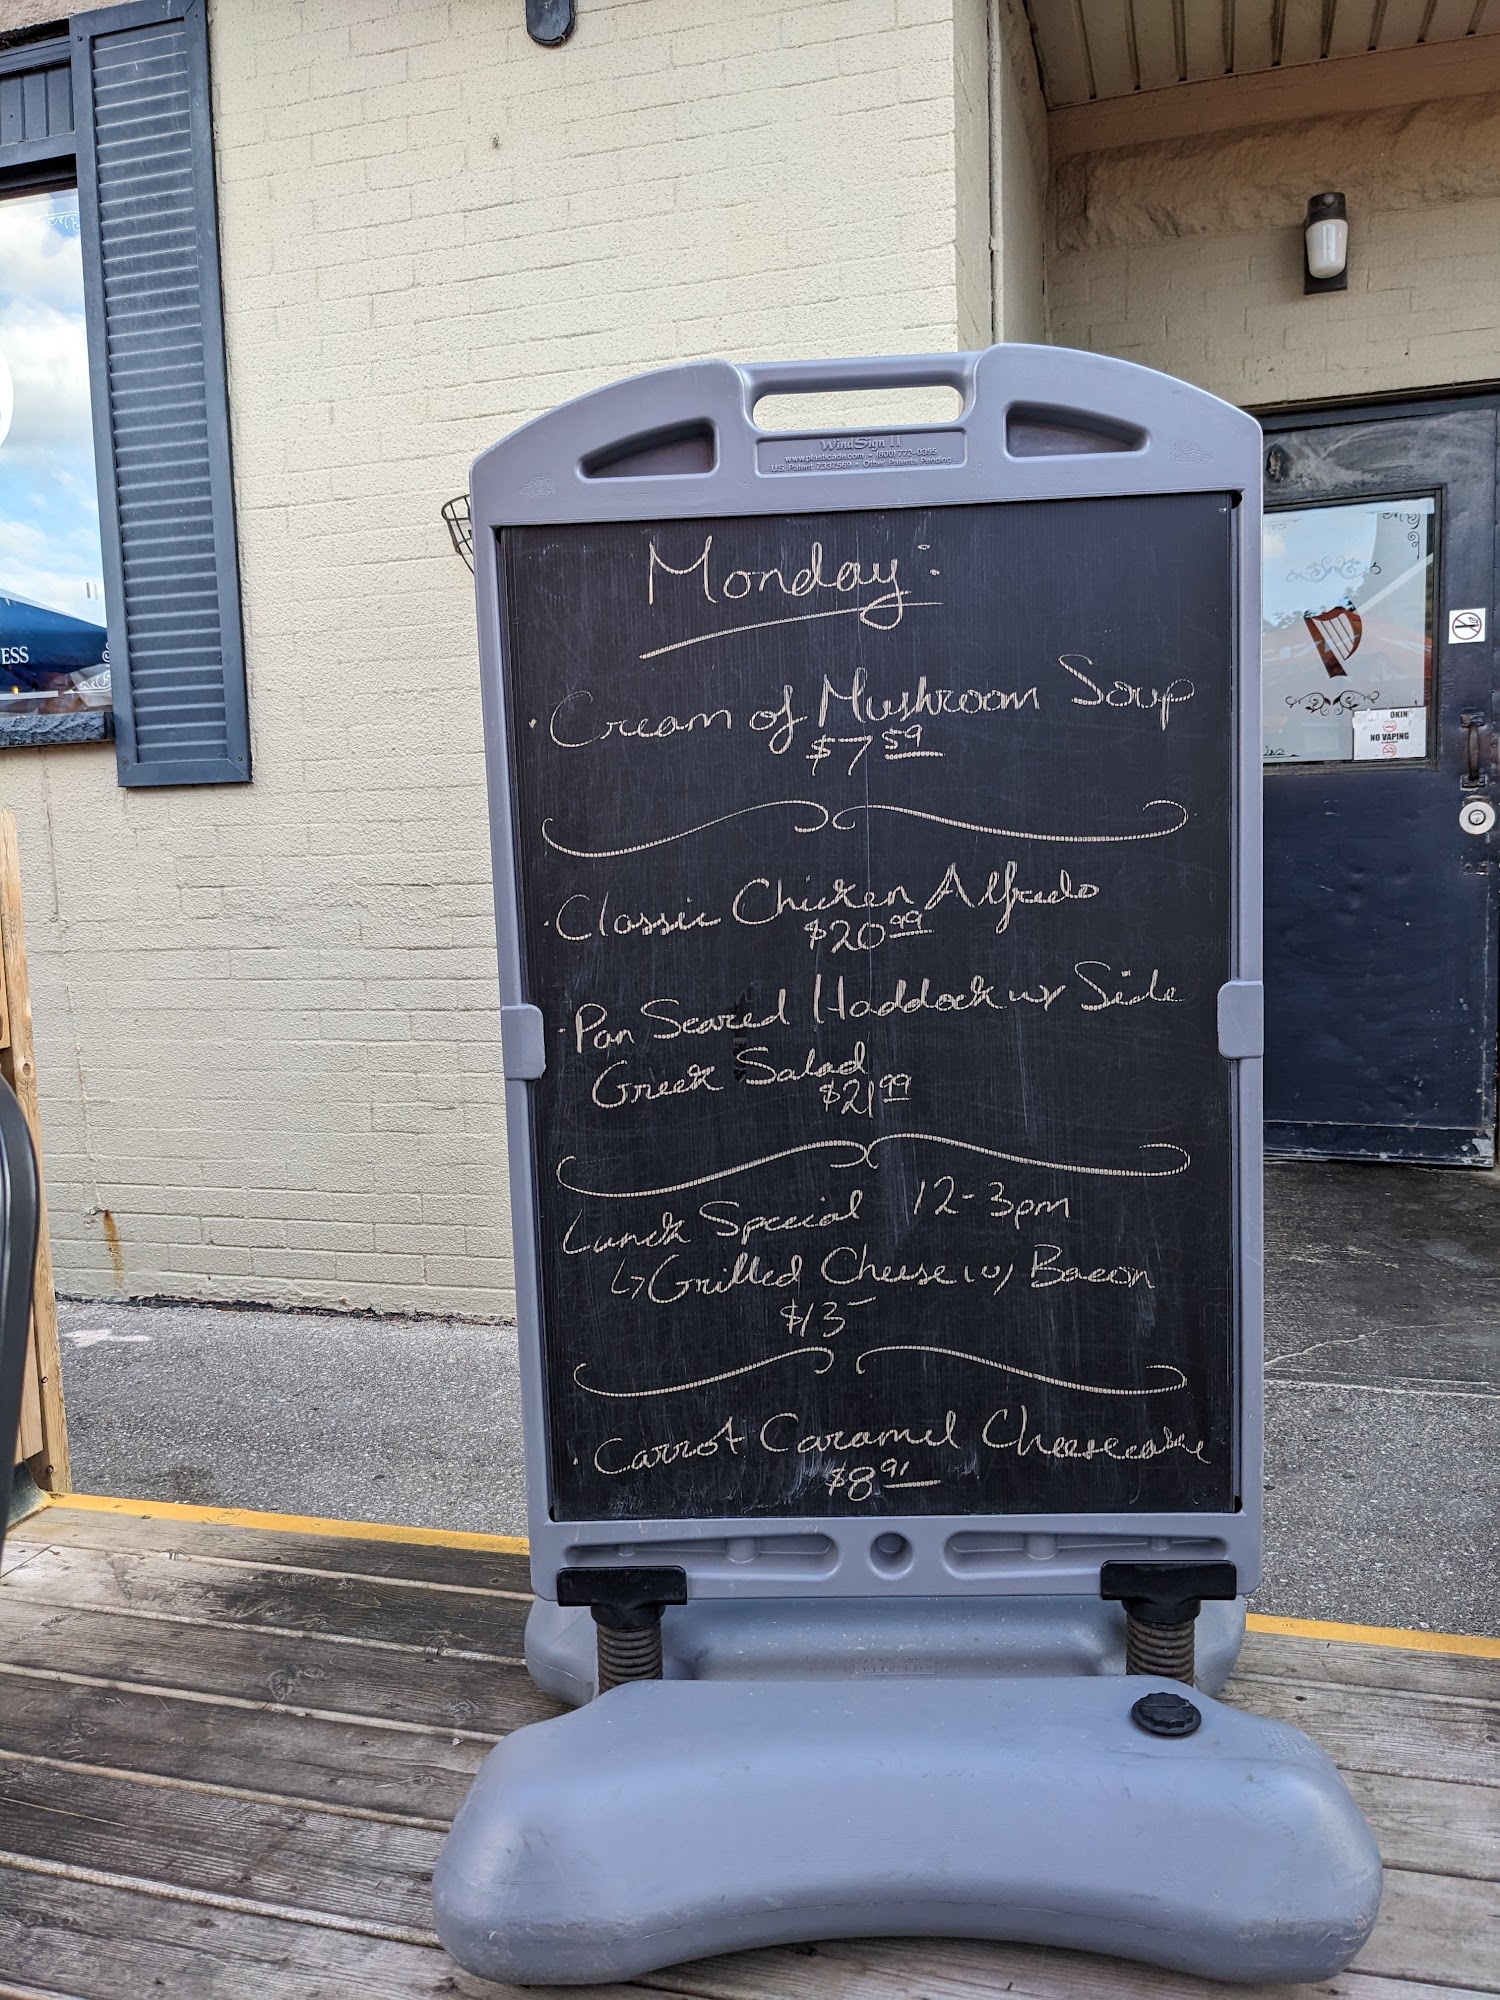 WindSign II
www.plasticade.com • (800) 772-0355
U.S. Patent 7,337,569 • Other Patents Pending
Monday:
· Cream of Mushroom Soup
$7 59
· Classic Chicken Alfredo
$20 99
· Pan Seared Haddock w/ Side
Greek Salad
$21 99
Lunch Special 12-3pm
↳ Grilled Cheese w/ Bacon
$13 -
· Carrot Caramel Cheesecake
$8 91
ESS
OKIN
NO VAPING